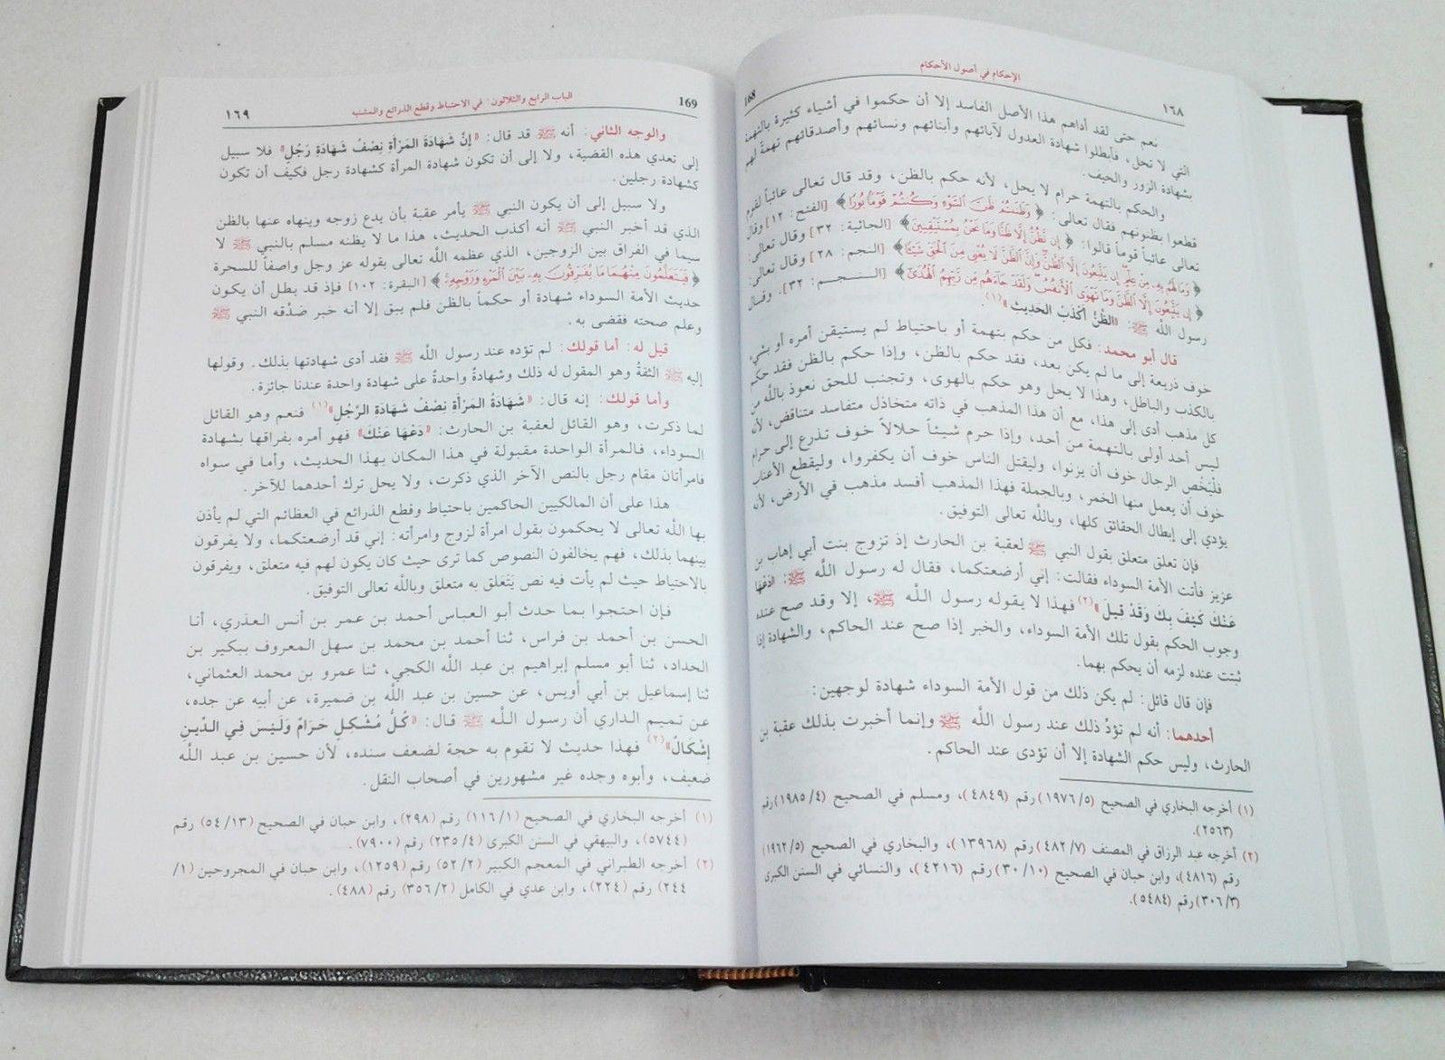 168
الإحكام في أصول الأحكام
١٦٨
نعم حتى لقد أداهم هذا الأصل الفاسد إلا أن حكموا في أشياء كثيرة بالتهمة
التي لا تحل، فأبطلوا شهادة العدول لآبائهم وأبنائهم ونسائهم وأصدقائهم تهمة لهم
بشهادة الزور والحيف.
والحكم بالتهمة حرام لا يحل، لأنه حكم بالظن، وقد قال تعالى عائباً لقوم
قطعوا بظنونهم فقال تعالى: ﴿وَظَنَنتُمْ ظَنَّ ٱلسَّوْءِ وَكُنتُمْ قَوْمًا بُورًا﴾ [الفتح: ١٢] وقال
تعالى عائباً قوماً قالوا: ﴿إِن نَّظُنُّ إِلَّا ظَنًّا وَمَا نَحْنُ بِمُسْتَيْقِنِينَ﴾ [الجاثية: ٣٢] وقال تعالى:
﴿وَمَا لَهُم بِهِۦ مِنْ عِلْمٍ إِن يَتَّبِعُونَ إِلَّا ٱلظَّنَّ وَإِنَّ ٱلظَّنَّ لَا يُغْنِى مِنَ ٱلْحَقِّ شَيْئًا﴾ [النجم: ٢٨] وقال تعالى:
﴿إِن يَتَّبِعُونَ إِلَّا ٱلظَّنَّ وَمَا تَهْوَى ٱلْأَنفُسُ وَلَقَدْ جَآءَهُم مِّن رَّبِّهِمُ ٱلْهُدَىٰ﴾ [النجم: ٣٢]. وقال
رسول الله ﷺ: «الظَّنُّ أَكْذَبُ الحديث»(١)
قال أبو محمد: فكل من حكم بتهمة أو باحتياط لم يستيقن أمره أو بشيء
خوف ذريعة إلى ما لم يكن بعد، فقد حكم بالظن، وإذا حكم بالظن فقد حكم
بالكذب والباطل، وهذا لا يحل وهو حكم بالهوى، وتجنب للحق نعوذ بالله من
كل مذهب أدى إلى هذا، مع أن هذا المذهب في ذاته متخاذل متفاسد متناقض، لأن
ليس أحد أولى بالتهمة من أحد، وإذا حرم شيئاً حلالاً خوف تذرع إلى حرام
فليخص الرجال خوف أن يزنوا، وليقتل الناس خوف أن يكفروا، وليقطع الأعناب
خوف أن يعمل منها الخمر، وبالجملة فهذا المذهب أفسد مذهب في الأرض، لأنه
يؤدي إلى إبطال الحقائق كلها، وبالله تعالى التوفيق.
فإن تعلق متعلق بقول النبي ﷺ لعقبة بن الحارث إذ تزوج بنت أبي إهاب بن
عزيز فأتت الأمة السوداء فقالت: إني أرضعتكما، فقال له رسول الله ﷺ: «دَعْهَا
عَنْكَ كَيْفَ بِكَ وَقَدْ قِيلَ»(٢) فهذا لا يقوله رسول الله ﷺ، إلا وقد صح عنده
وجوب الحكم بقول تلك الأمة السوداء، والخبر إذا صح عند الحاكم، والشهادة إذا
ثبتت عنده لزمه أن يحكم بهما.
فإن قال قائل: لم يكن ذلك من قول الأمة السوداء شهادة لوجهين:
أحدهما: أنه لم تؤدِّ ذلك عند رسول الله ﷺ وإنما أخبرت بذلك عقبة بن
الحارث، وليس حكم الشهادة إلا أن تؤدى عند الحاكم.
(١) أخرجه البخاري في الصحيح (١٩٧٦/٥) رقم (٤٨٤٩)، ومسلم في الصحيح (١٩٨٥/٤) رقم
(٢٥٦٣).
(٢) أخرجه عبد الرزاق في المصنف (٤٨٢/٧) رقم (١٣٩٦٨)، والبخاري في الصحيح (١٩٦٢/٥)
رقم (٤٨١٦)، وابن حبان في الصحيح (٣٠/١٠) رقم (٤٢١٦)، والنسائي في السنن الكبرى
(٣٠٦/٣) رقم (٥٤٨٤).
169
الباب الرابع والثلاثون: في الاحتياط وقطع الذرائع والمشتبه
١٦٩
والوجه الثاني: أنه ﷺ قد قال: «إِنَّ شَهَادَةَ المَرْأَةِ نِصْفُ شَهَادَةِ رَجُلٍ» فلا سبيل
إلى تعدي هذه القضية، ولا إلى أن تكون شهادة المرأة كشهادة رجل فكيف أن تكون
كشهادة رجلين.
ولا سبيل إلى أن يكون النبي ﷺ يأمر عقبة بأن يدع زوجه وينهاه عنها بالظن
الذي قد أخبر النبي ﷺ أنه أكذب الحديث، هذا ما لا يظنه مسلم بالنبي ﷺ لا
سيما في الفراق بين الزوجين، الذي عظمه الله تعالى بقوله عز وجل واصفاً للسحرة
﴿فَيَتَعَلَّمُونَ مِنْهُمَا مَا يُفَرِّقُونَ بِهِۦ بَيْنَ ٱلْمَرْءِ وَزَوْجِهِۦ﴾ [البقرة: ١٠٢] فإذ قد بطل أن يكون
حديث الأمة السوداء شهادة أو حكماً بالظن فلم يبق إلا أنه خبر صدَّقه النبي ﷺ
وعلم صحته فقضى به.
قيل له: أما قولك: لم تؤده عند رسول الله ﷺ فقد أدى شهادتها بذلك. وقولها
إليه ﷺ الثقةُ وهو المقول له ذلك وشهادةُ واحدةٌ على شهادة واحدة عندنا جائزة.
وأما قولك: إنه قال: «شَهَادَةُ المَرْأَة نِصْفُ شَهَادَة الرَّجُلِ»(١) فنعم وهو القائل
لما ذكرت، وهو القائل لعقبة بن الحارث: «دَعْهَا عَنْكَ» فهو أمره بفراقها بشهادة
السوداء، فالمرأة الواحدة مقبولة في هذا المكان بهذا الحديث، وأما في سواه
فامرأتان مقام رجل بالنص الآخر الذي ذكرت، ولا يحل ترك أحدهما للآخر.
هذا على أن المالكيين الحاكمين باحتياط وقطع الذرائع في العظائم التي لم يأذن
بها الله تعالى لا يحكمون بقول امرأة لزوج وامرأته: إني قد أرضعتكما، ولا يفرقون
بينهما بذلك، فهم يخالفون النصوص كما ترى حيث كان يكون لهم فيه متعلق، ويفرقون
بالاحتياط حيث لم يأت فيه نص يَتَعَلق به متعلق وبالله تعالى التوفيق.
فإن احتجوا بما حدث أبو العباس أحمد بن عمر بن أنس العذري، أنا
الحسن بن أحمد بن فراس، ثنا أحمد بن محمد بن سهل المعروف ببكير بن
الحداد، ثنا أبو مسلم إبراهيم بن عبد الله الكجي، ثنا عمرو بن محمد العثماني،
ثنا إسماعيل بن أبي أويس، عن حسين بن عبد الله بن ضميرة، عن أبيه عن جده،
عن تميم الداري أن رسول الله ﷺ قال: «كُلُّ مُشْكِلٍ حَرَامٌ وَلَيْسَ فِي الدِّينِ
إِشْكَالٌ»(٢) فهذا حديث لا تقوم به حجة لضعف سنده، لأن حسين بن عبد الله
ضعيف، وأبوه وجده غير مشهورين في أصحاب النقل.
(١) أخرجه البخاري في الصحيح (١١٦/١) رقم (٢٩٨)، وابن حبان في الصحيح (٥٤/١٣) رقم
(٥٧٤٤)، والبيهقي في السنن الكبرى (٢٣٥/٤) رقم (٧٩٠٠).
(٢) أخرجه الطبراني في المعجم الكبير (٥٢/٢) رقم (١٢٥٩)، وابن حبان في المجروحين (١/
٢٤٤) رقم (٢٢٤)، وابن عدي في الكامل (٣٥٦/٢) رقم (٤٨٨).